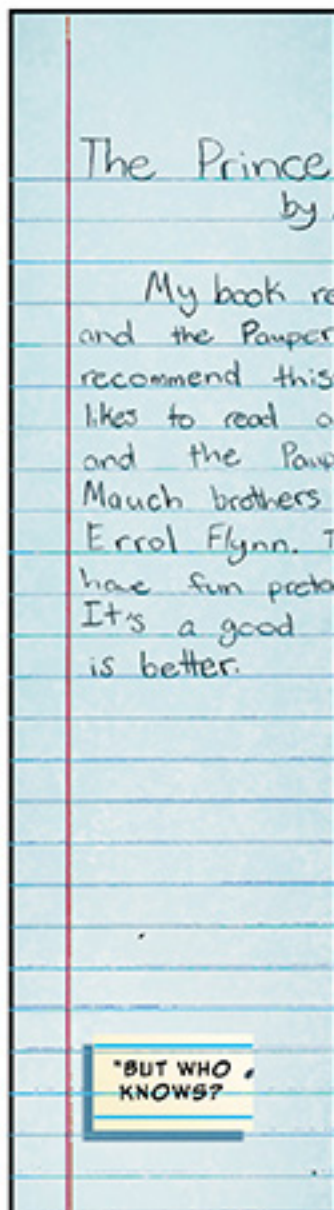 The Prince
by
My book re
and the Pauper
recommend this
likes to read a
and the Paup
Mauch brothers
Errol Flynn. T
have fun prete
It's a good
is better.
"BUT WHO
KNOWS?